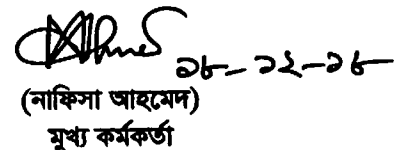 ১৮-১২-১৮
(নাফিসা আহমেদ)
মুখ্য কর্মকর্তা